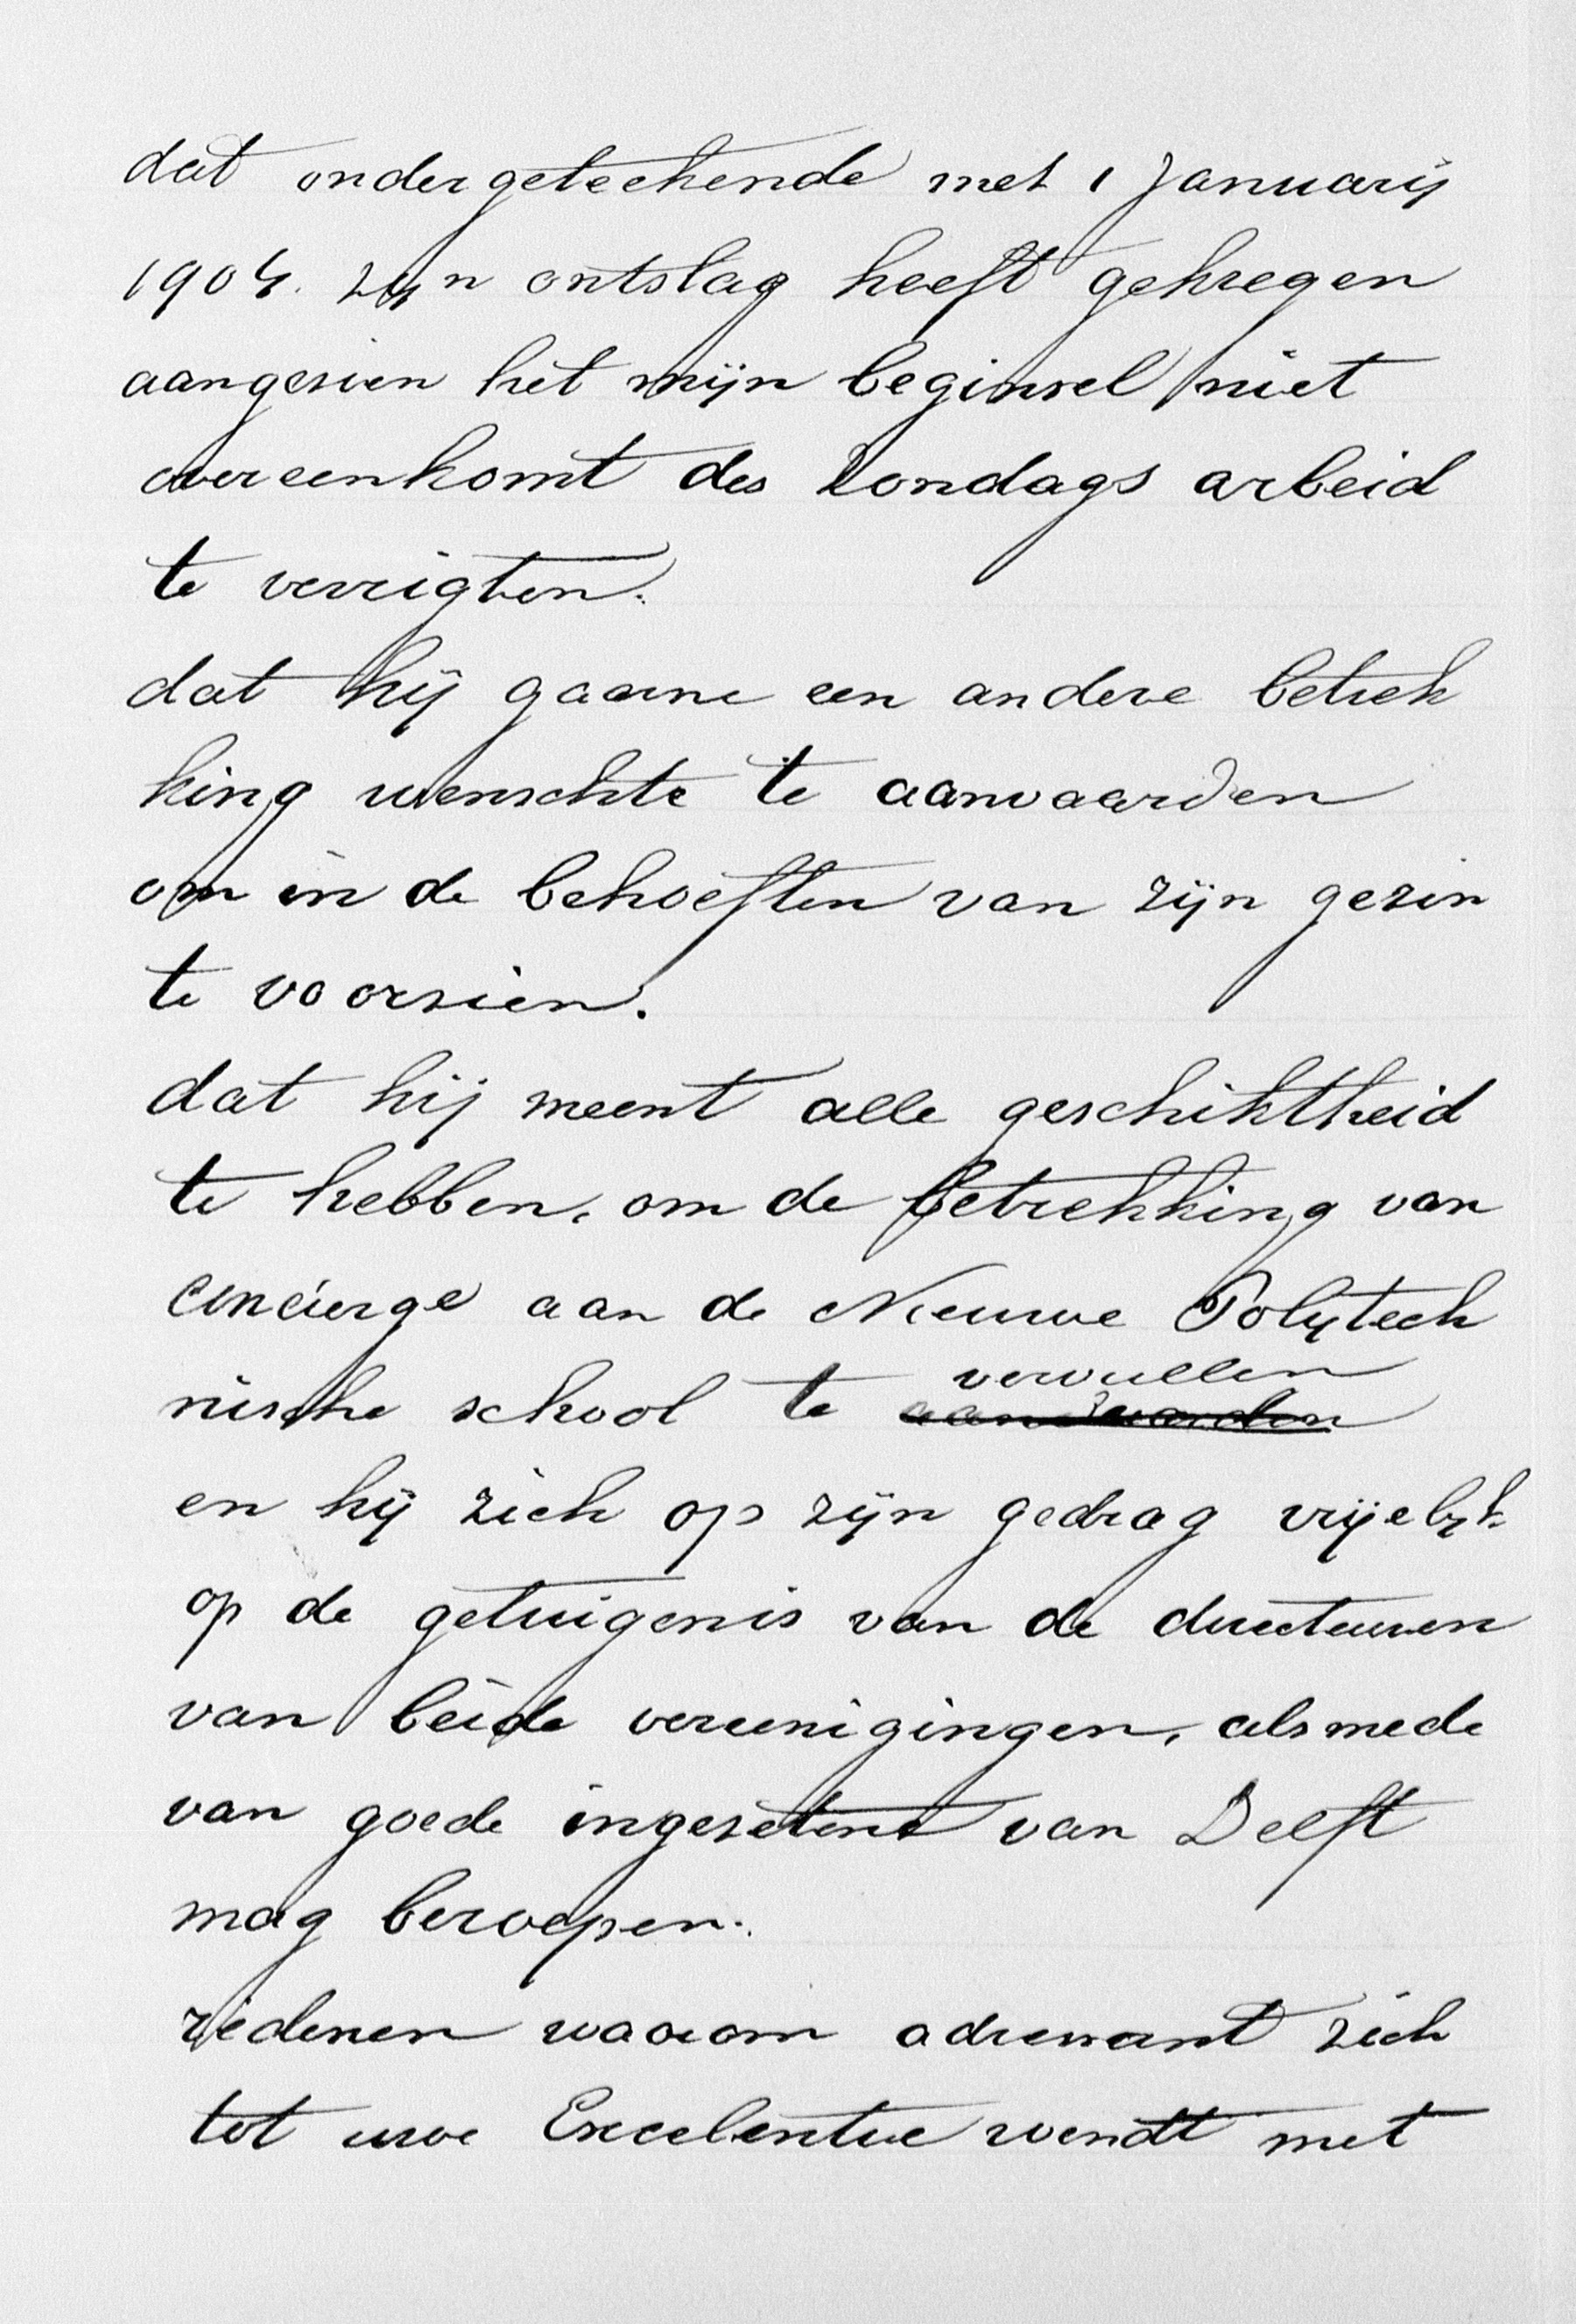 dat ondergeteekende met 1 Januarij
1904. zijn ontslag heeft gekregen
aangesien het mijn beginsel niet
overeenkomt des Zondags arbeid
te verrigten.
dat hij gaarne een andere betrek
king wenschte te aanvaarden
om in de behoeften van zijn gezin
te voorsien.
dat hij meent alle geschiktheid
te hebben, om de betrekking van
concierge aan de Nieuwe Polytech
nische school te vervullen
en hij zich op zijn gedrag vrijelijk
op de getuigenis van de directeuren
van beide vereenigingen, alsmede
van goede ingezetene van Delft
mag beroepen.
redenen waarom adressant zich
tot uwe Excelentie wendt met